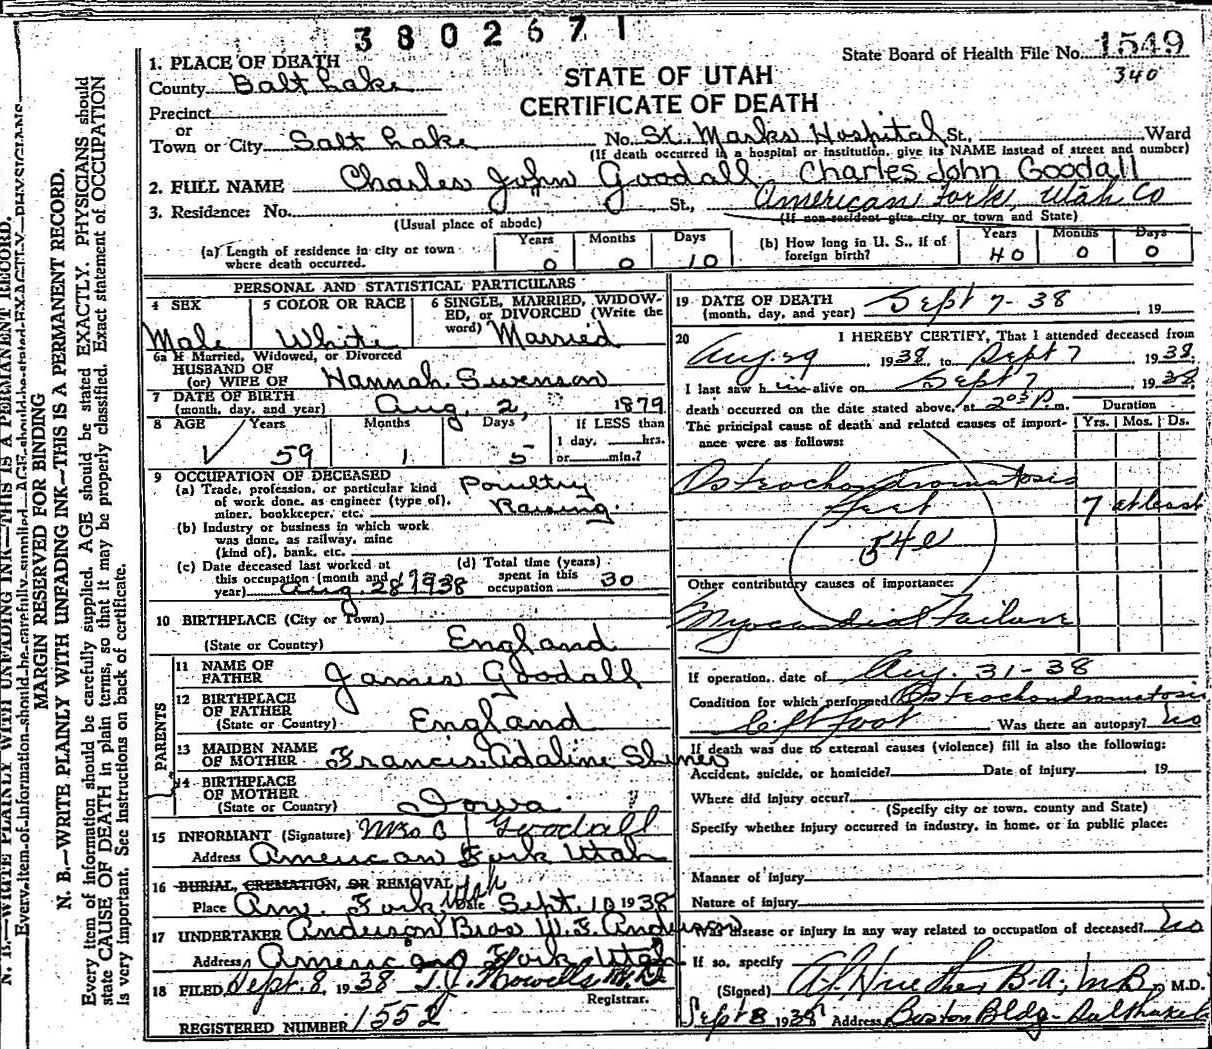 3802671
State Board of Health File No. 1549
340
STATE OF UTAH
CERTIFICATE OF DEATH
1. PLACE OF DEATH
County Salt Lake
Precinct
or
Town or City Salt Lake No. St. Marks Hospital St., Ward
(If death occurred in a hospital or institution, give its NAME instead of street and number)
2. FULL NAME Charles John Goodall Charles John Goodall
3. Residence: No. St., American Fork, Utah Co
(Usual place of abode) (If non-resident give city or town and State)
(a) Length of residence in city or town where death occurred. Years 0 Months 0 Days 10
(b) How long in U. S., if of foreign birth? Years 40 Months 0 Days 0
PERSONAL AND STATISTICAL PARTICULARS
4 SEX Male
5 COLOR OR RACE White
6 SINGLE, MARRIED, WIDOWED, or DIVORCED (Write the word) Married
6a If Married, Widowed, or Divorced
HUSBAND OF
(or) WIFE OF Hannah Swenson
7 DATE OF BIRTH
(month, day, and year) Aug. 2, 1879
8 AGE Years 59 Months 1 Days 5 If LESS than 1 day, hrs. or min.?
9 OCCUPATION OF DECEASED
(a) Trade, profession, or particular kind of work done, as engineer (type of), miner, bookkeeper, etc. Poultry Raising.
(b) Industry or business in which work was done, as railway, mine (kind of), bank, etc.
(c) Date deceased last worked at this occupation (month and year) Aug. 28 1938
(d) Total time (years) spent in this occupation 30
10 BIRTHPLACE (City or Town)
(State or Country) England
PARENTS
11 NAME OF FATHER James Goodall
12 BIRTHPLACE OF FATHER
(State or Country) England
13 MAIDEN NAME OF MOTHER Francis Adaline
14 BIRTHPLACE OF MOTHER
(State or Country) Iowa
15 INFORMANT (Signature) Mrs C J Goodall
Address American Fork Utah
16 BURIAL, CREMATION, OR REMOVAL
Place Am. Fork Utah Date Sept. 10 1938
17 UNDERTAKER Anderson Bros W. F. Anderson
Address American Fork Utah
18 FILED Sept. 8, 1938 T.J. Howells M.D.
Registrar.
REGISTERED NUMBER 1552
19 DATE OF DEATH
(month, day, and year) Sept 7-38, 19
20 I HEREBY CERTIFY, That I attended deceased from
Aug. 29 1938 to Sept 7, 1938.
I last saw him alive on Sept 7, 1938
death occurred on the date stated above, at 2 P. m.
Duration
The principal cause of death and related causes of importance were as follows: Yrs. Mos. Ds.
Osteochondromatosis
feet 7 at least
54e
Other contributory causes of importance:
Myocardial Failure
If operation, date of Aug. 31-38
Condition for which performed Osteochondromatosis
left foot Was there an autopsy? no
If death was due to external causes (violence) fill in also the following:
Accident, suicide, or homicide? Date of injury 19
Where did injury occur?
(Specify city or town, county and State)
Specify whether injury occurred in industry, in home, or in public place:
Manner of injury
Nature of injury
Was disease or injury in any way related to occupation of deceased? no
If so, specify
(Signed) B.A., M.B., M.D.
Sept 8 1938 Address Boston Bldg- Salt Lake
N. B.—WRITE PLAINLY WITH UNFADING INK—THIS IS A PERMANENT RECORD.
Every item of information should be carefully supplied. AGE should be stated EXACTLY. PHYSICIANS
MARGIN RESERVED FOR BINDING
N. B.—WRITE PLAINLY WITH UNFADING INK—THIS IS A PERMANENT RECORD.
Every item of information should be carefully supplied. AGE should be stated EXACTLY. PHYSICIANS should
state CAUSE OF DEATH in plain terms, so that it may be properly classified. Exact statement of OCCUPATION
is very important. See instructions on back of certificate.